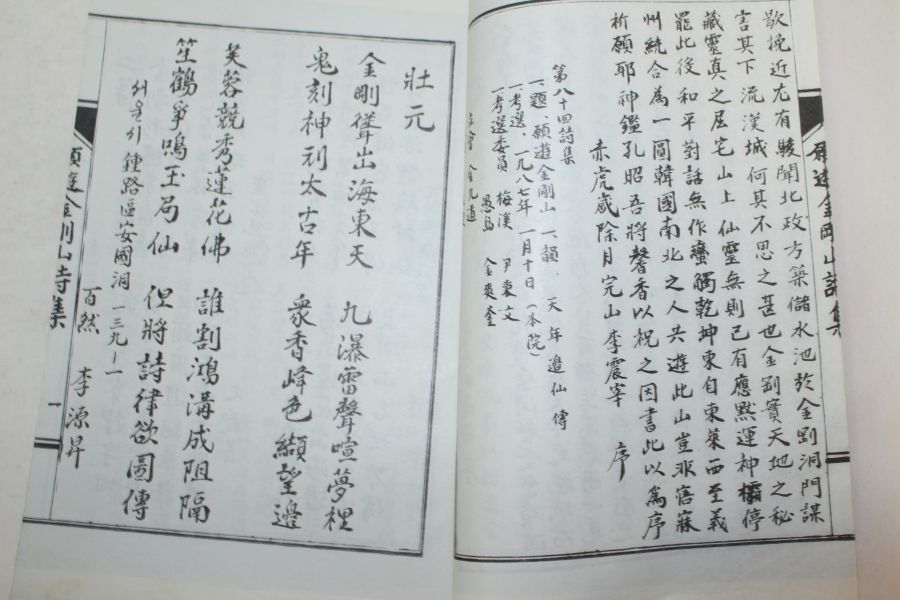 歇挽近尤有駭聞北政方築儲水池於金剛洞門謀
害其下流漢城何其不思之甚也金剛實天地之秘
藏靈真之居宅山上仙靈無則已有應默運神權停
罷此後和平對話無作蠻觸乾坤東自東萊西至義
州統合為一圖韓國南北之人共遊此山豈非寤寐
祈願耶神鑑孔昭吾將馨香以祝之因書此以為序
赤虎歲除月完山 李震宰 序
第八十四詩集
一、題、願遊金剛山 一、韻、天 年 邊 仙 傳
一、考選、一九八七年 一月十日(本院)
一考選委員 梅溪 尹東文
愚鳥 金奭奎
願遊金剛山詩集
壯元
金剛聳出海東天 九瀑雷聲喧夢裡
鬼刻神刓太古年 衆香峰色纈望邊
芙蓉競秀蓮花佛 誰割鴻溝成阻隔
笙鶴爭鳴玉局仙 但將詩律欲圖傳
서울시 鍾路區安國洞 一三九-一
百然 李源昇
願遊金剛山詩集
一